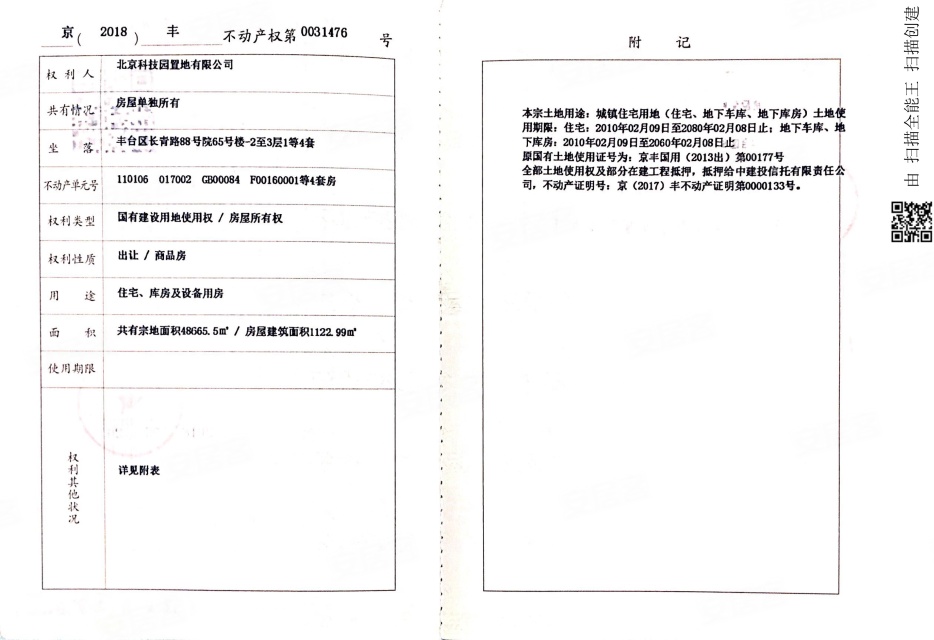 京( 2018 )丰 不动产权第0031476 号
权利人 北京科技园置地有限公司
共有情况 房屋单独所有
坐落 丰台区长青路88号院65号楼-2至3层1等4套
不动产单元号 110106 017002 GB00084 F00160001等4套房
权利类型 国有建设用地使用权 / 房屋所有权
权利性质 出让 / 商品房
用途 住宅、库房及设备用房
面积 共有宗地面积48665.5㎡ / 房屋建筑面积1122.99㎡
使用期限
权利其他状况 详见附表
附 记
本宗土地用途：城镇住宅用地（住宅、地下车库、地下库房）土地使
用期限：住宅：2010年02月09日至2080年02月08日止；地下车库、地
下库房：2010年02月09日至2060年02月08日止
原国有土地使用证号为：京丰国用（2013出）第00177号
全部土地使用权及部分在建工程抵押，抵押给中建投信托有限责任公
司，不动产证明号：京（2017）丰不动产证明第0000133号。
由 扫描全能王 扫描创建